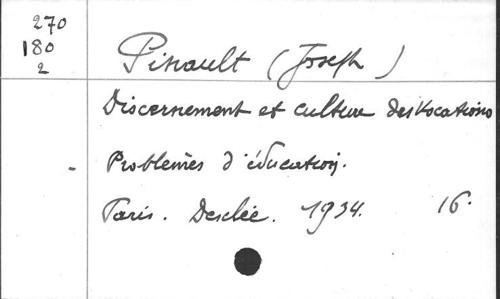 270
180
2
Pinault (Joseph)
Discernement et culture des Vocations
Problèmes d'éducation.
Paris. Desclée. 1934. 16°